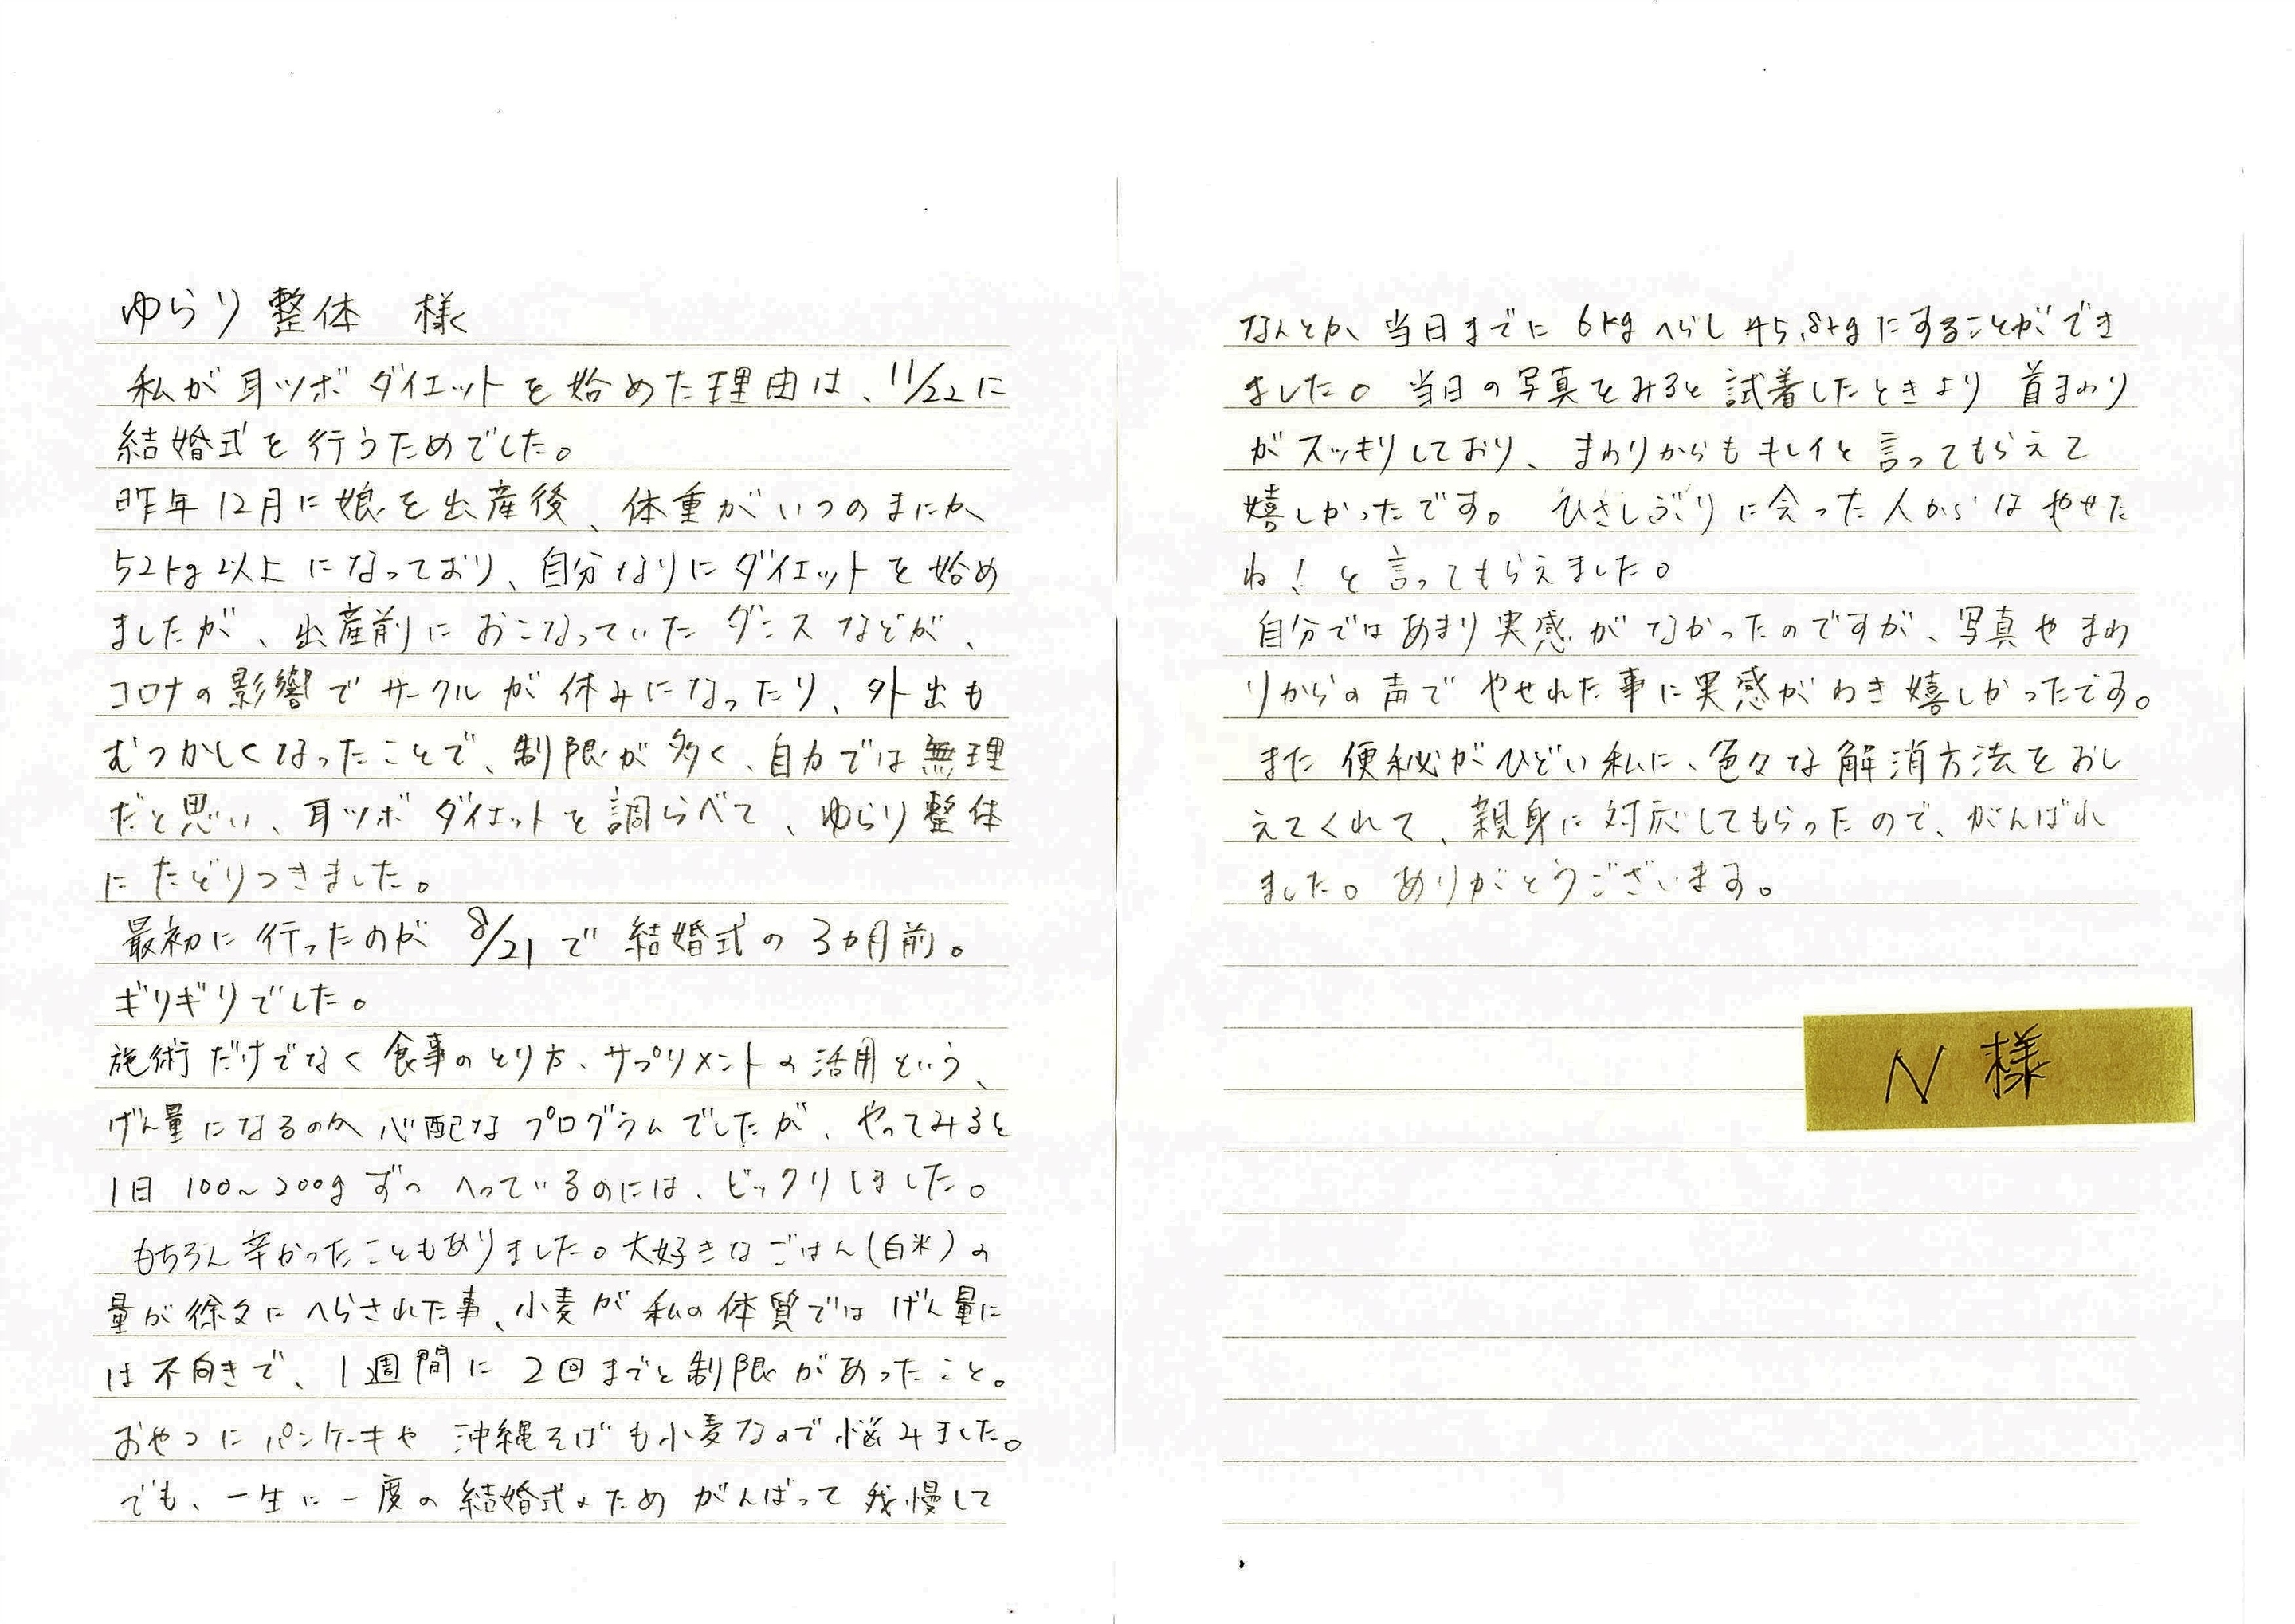 ゆらり整体 様
私が耳ツボダイエットを始めた理由は、11/22に
結婚式を行うためでした。
昨年12月に娘を出産後、体重がいつのまにか
52kg以上になっており、自分なりにダイエットを始め
ましたが、出産前におこなっていたダンスなどが、
コロナの影響でサークルが休みになったり、外出も
むつかしくなったことで、制限が多く、自力では無理
だと思い、耳ツボダイエットを調らべて、ゆらり整体
にたどりつきました。
最初に行ったのが 8/21で結婚式の3カ月前。
ギリギリでした。
施術だけでなく食事のとり方、サプリメントの活用という、
げん量になるのか心配なプログラムでしたが、やってみると
1日100~200gずつへっているのには、ビックリしました。
もちろん辛かったこともありました。大好きなごはん(白米)の
量が徐々にへらされた事、小麦が私の体質ではげん量に
は不向きで、1週間に2回までと制限があったこと。
おやつにパンケーキや沖縄そばも小麦なので悩みました。
でも、一生に一度の結婚式のためがんばって我慢して
なんとか、当日までに6kgへらし45.8kgにすることができ
ました。当日の写真をみると試着したときより首まわり
がスッキリしており、まわりからもキレイと言ってもらえて
嬉しかったです。ひさしぶりに会った人からはやせた
ね!と言ってもらえました。
自分ではあまり実感がなかったのですが、写真やまわ
りからの声でやせれた事に実感がわき嬉しかったです。
また便秘がひどい私に、色々な解消方法をおし
えてくれて、親身に対応してもらったので、がんばれ
ました。ありがとうございます。
N様